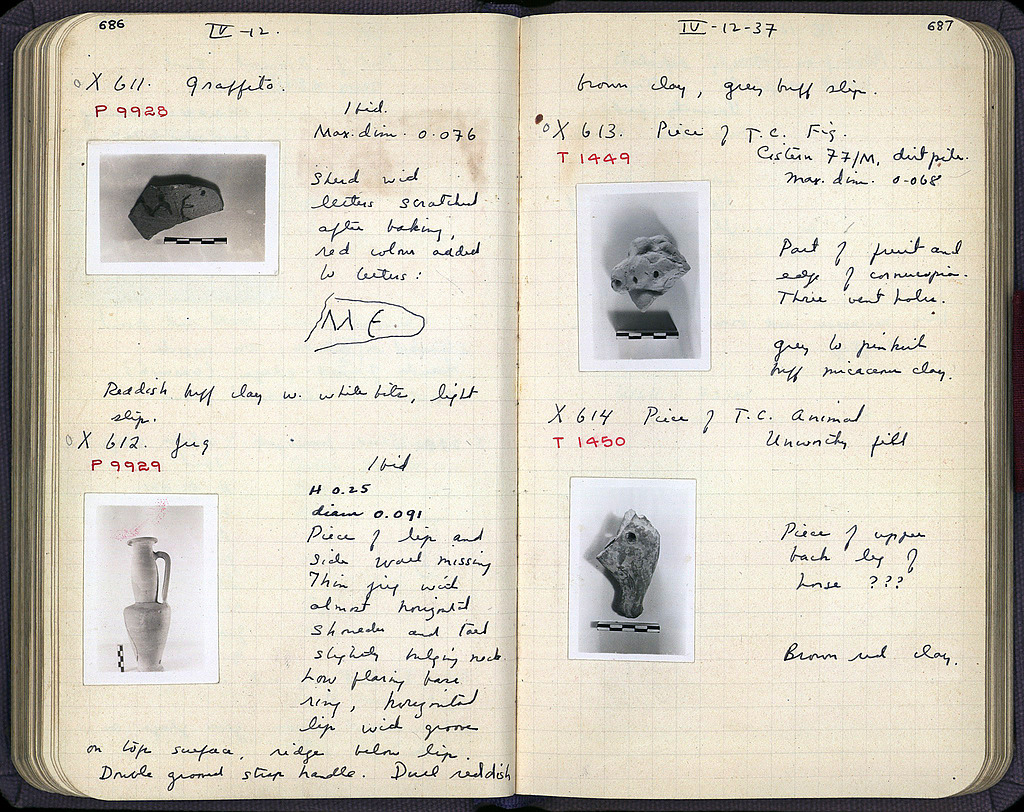 686
IV-12.
X 611. Graffito.
P 9928
Ibid.
Max. dim. 0.076
Sherd with
letters scratched
after baking,
red colour added
to letters:
ME.
Reddish buff clay w. white bits, light
slip.
X 612. Jug
P 9929
Ibid
H 0.25
diam 0.091
Piece of lip and
side wall missing
Thin jug with
almost horizontal
shoulder and tall
slightly bulging neck.
Low flaring base
ring, horizontal
lip with groove
on top surface, ridge below lip.
Double grooved strap handle. Dull reddish
687
IV-12-37
brown clay, grey buff slip.
X 613. Piece of T.C. Fig.
T 1449
Cistern 77/M, dirt pile.
Max. dim. 0.068
Part of fruit and
edge of cornucopia.
Three vent holes.
grey to pinkish
buff micaceous clay.
X 614 Piece of T.C. Animal
T 1450
Unworthy fill
Piece of upper
back leg of
horse ???
Brown red clay.